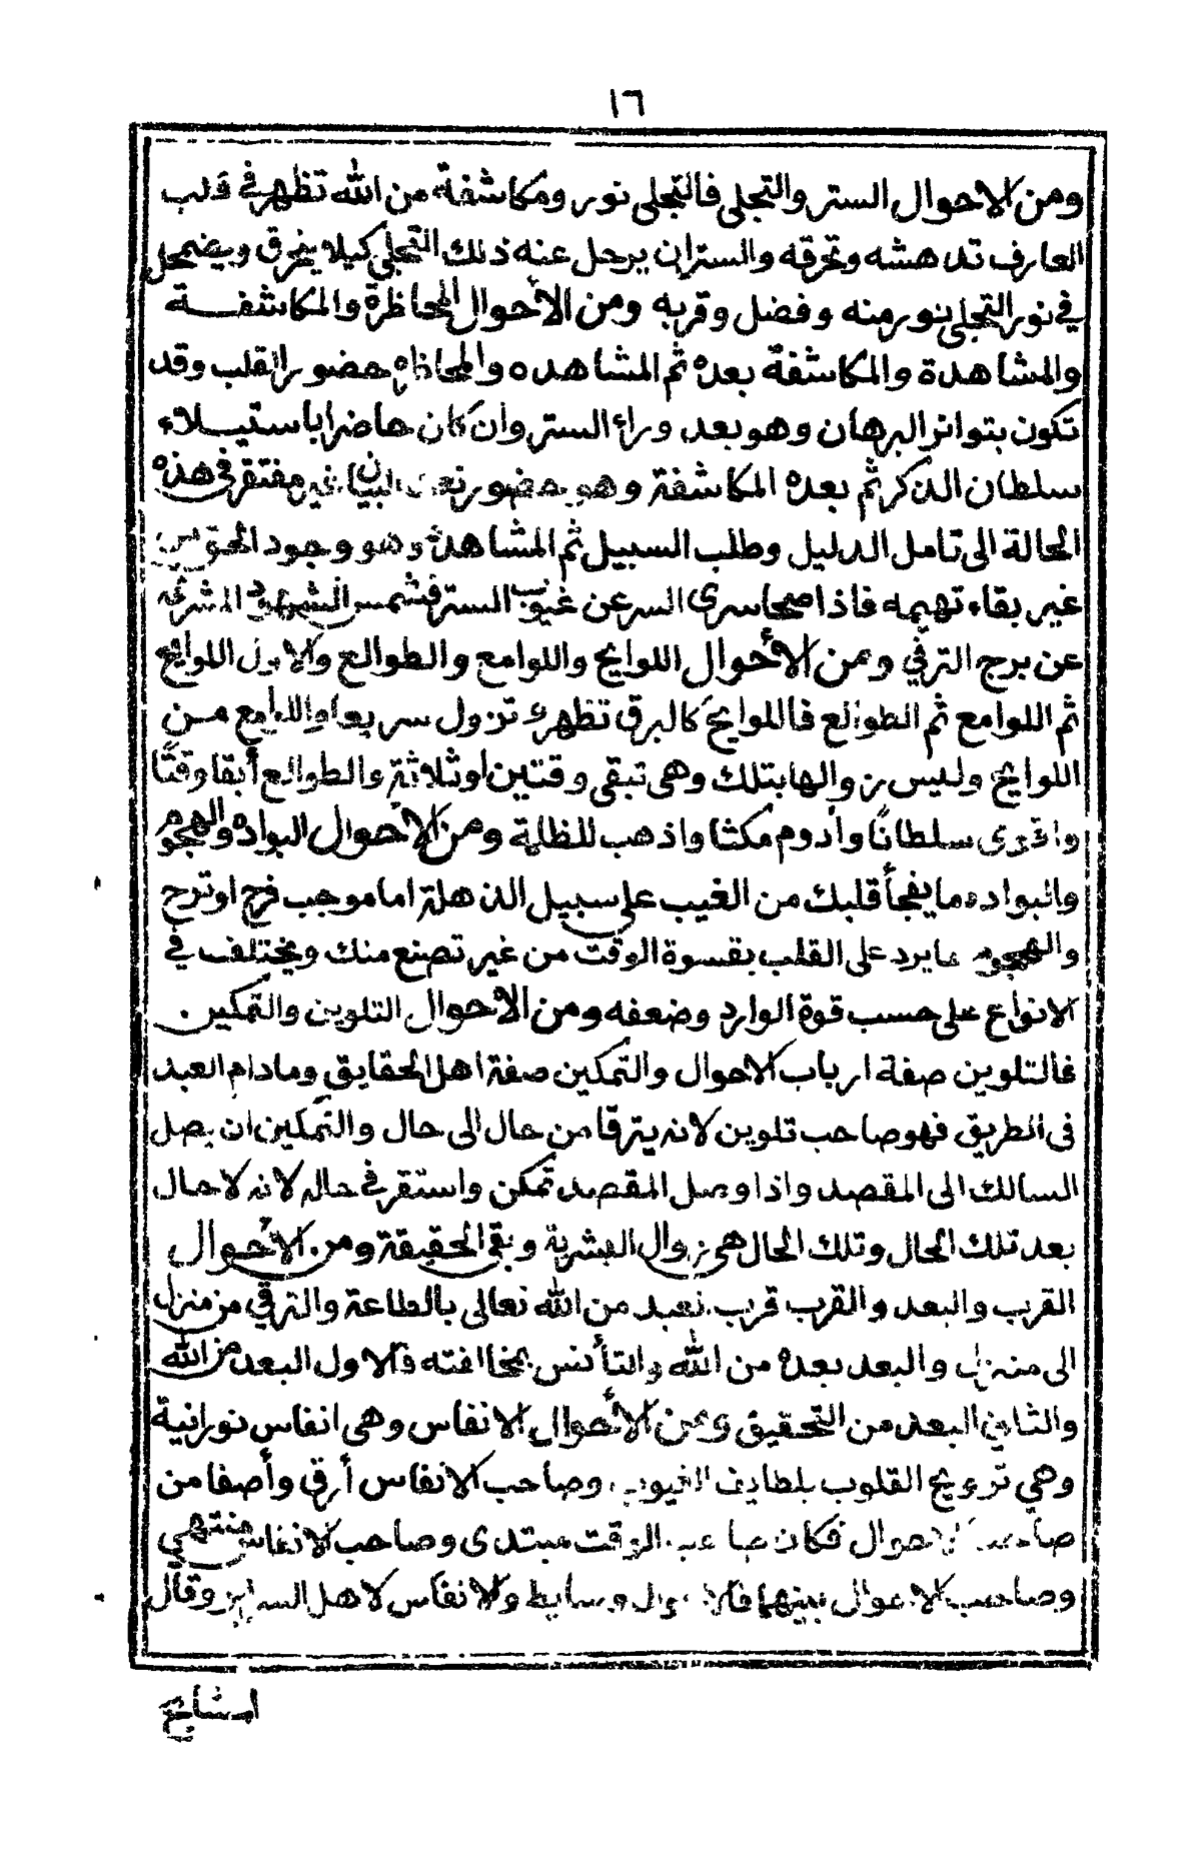 ١٦
ومن الاحوال الستر والتجلى فالتجلى نور ومكاشفة من الله تظهر فى قلب
العارف تدهشه وتحرقه والستران يرحل عنه ذلك التجلى كيلا يحرق ويضمحل
فى نور التجلى نور منه وفضل وقربه ومن الأحوال المحاظرة والمكاشفة
والمشاهدة والمكاشفة بعده ثم المشاهده والمحاظره حضور القلب وقد
تكون بتواتر البرهان وهو بعد وراء الستر وان كان حاضرا باستيلاء
سلطان الذكر ثم بعده المكاشفة وهو حضور البيان غير مفتقر فى هذه
الحالة الى تامل الدليل وطلب السبيل ثم المشاهدة وهو وجود الحق من
غير بقاء تهيمه فاذا صحا سرى السر عن غيوب الستر فشمس الشهود المشرقة
عن برج الترقي ومن الأحوال اللوايح واللوامع والطوالع والاول اللوايح
ثم اللوامع ثم الطوالع فاللوايح كالبرق تظهر وتزول سريعا واللوامع من
اللوايح وليس زوالها بتلك وهى تبقى وقتين او ثلاثة والطوالع أبقا وقتًا
واقوى سلطانًا وأدوم مكثا واذهب للظلمة ومن الأحوال البواده والهجوم
والبواده ما يفجأ قلبك من الغيب على سبيل الذهلة اما موجب فرح او ترح
والهجوم ما يرد على القلب بقسوة الوقت من غير تصنع منك ويختلف في
الانواع على حسب قوة الوارد وضعفه ومن الاحوال التلوين والتمكين
فالتلوين صفة ارباب الاحوال والتمكين صفة اهل الحقايق وما دام العبد
فى الطريق فهو صاحب تلوين لانه يترقا من حال الى حال والتمكين ان يصل
السالك الى المقصد واذا وصل المقصد تمكن واستقر في حاله لانه لا حال
بعد تلك الحال وتلك الحال هى زوال البشرية وبقى الحقيقة ومن الأحوال
القرب والبعد والقرب قرب العبد من الله تعالى بالطاعة والترقي من منزل
الى منزل والبعد بعده من الله والتأنس بمخالفته فالاول البعد من الله
والثاني البعد من التحقيق ومن الأحوال الانفاس وهى انفاس نورانية
وهي ترويح القلوب بلطايف الغيوب وصاحب الانفاس أرقي وأصفا من
صاحب الاحوال فكان صاحب الوقت مبتدى وصاحب الانفاس منتهي
وصاحب الاحوال بينهما فالاحوال وسايط والانفاس لاهل السراير وقال
المشايخ